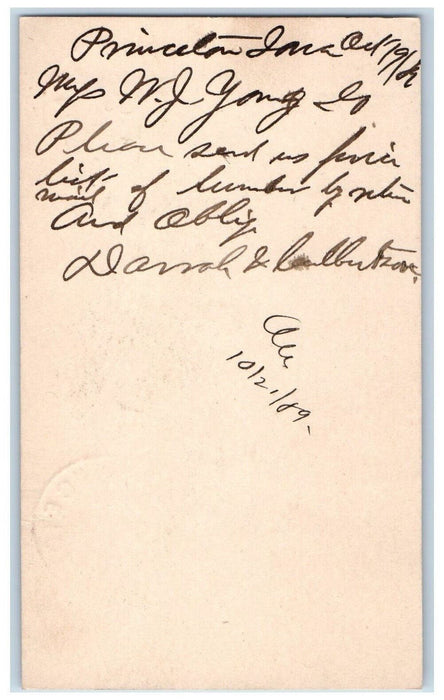 Princeton Iowa Oct 19/89
W. J. Young & Co
Please send us price
list of lumber by return
mail
And Oblig
Darrah & Culbertson.
10/21/89.